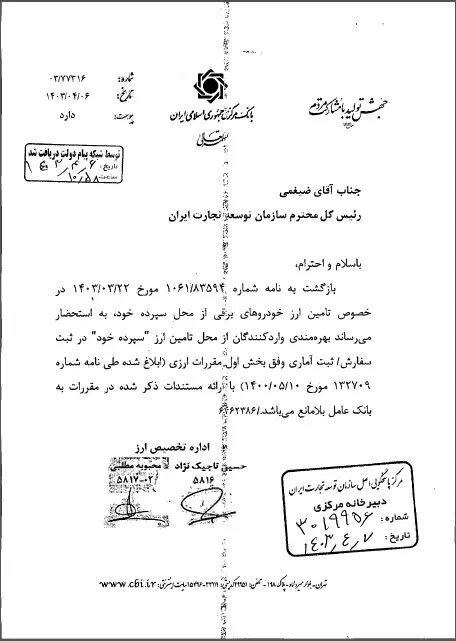 جهش تولید با مشارکت مردم
بانک مرکزی جمهوری اسلامی ایران
بسمه تعالی
شماره: ۰۳/۷۷۳۱۶
تاریخ: ۱۴۰۳/۰۴/۰۶
پیوست: دارد
توسط شبکه پیام دولت دریافت شد
تاریخ: ۱۴۰۳/۴/۶
ساعت: ۱۰:۵۸
جناب آقای ضیغمی
رئیس کل محترم سازمان توسعه تجارت ایران
باسلام و احترام،
بازگشت به نامه شماره ۱۰۶۱/۸۳۵۹۴ مورخ ۱۴۰۳/۰۳/۲۲ در
خصوص تامین ارز خودروهای برقی از محل سپرده خود، به استحضار
می‌رساند بهره‌مندی واردکنندگان از محل تامین ارز "سپرده خود" در ثبت
سفارش/ ثبت آماری وفق بخش اول مقررات ارزی (ابلاغ شده طی نامه شماره
۱۳۲۷۰۹ مورخ ۱۴۰۰/۰۵/۱۰) با ارائه مستندات ذکر شده در مقررات به
بانک عامل بلامانع می‌باشد./۶۶۶۲۳۸۶
اداره تخصیص ارز
حسین تاجیک نژاد محبوبه مطلبی
۵۸۱۶ ۵۸۱۷-۰۲
مرکز پاسخگویی اصل سازمان توسعه تجارت ایران
دبیرخانه مرکزی
شماره: ۳۰۱۹۹۵۶
تاریخ: ۱۴۰۳/۴/۷
تهران- بلوار میرداماد- پلاک ۱۹۸- تلفن: ۲۹۹۵۱
www.cbi.ir